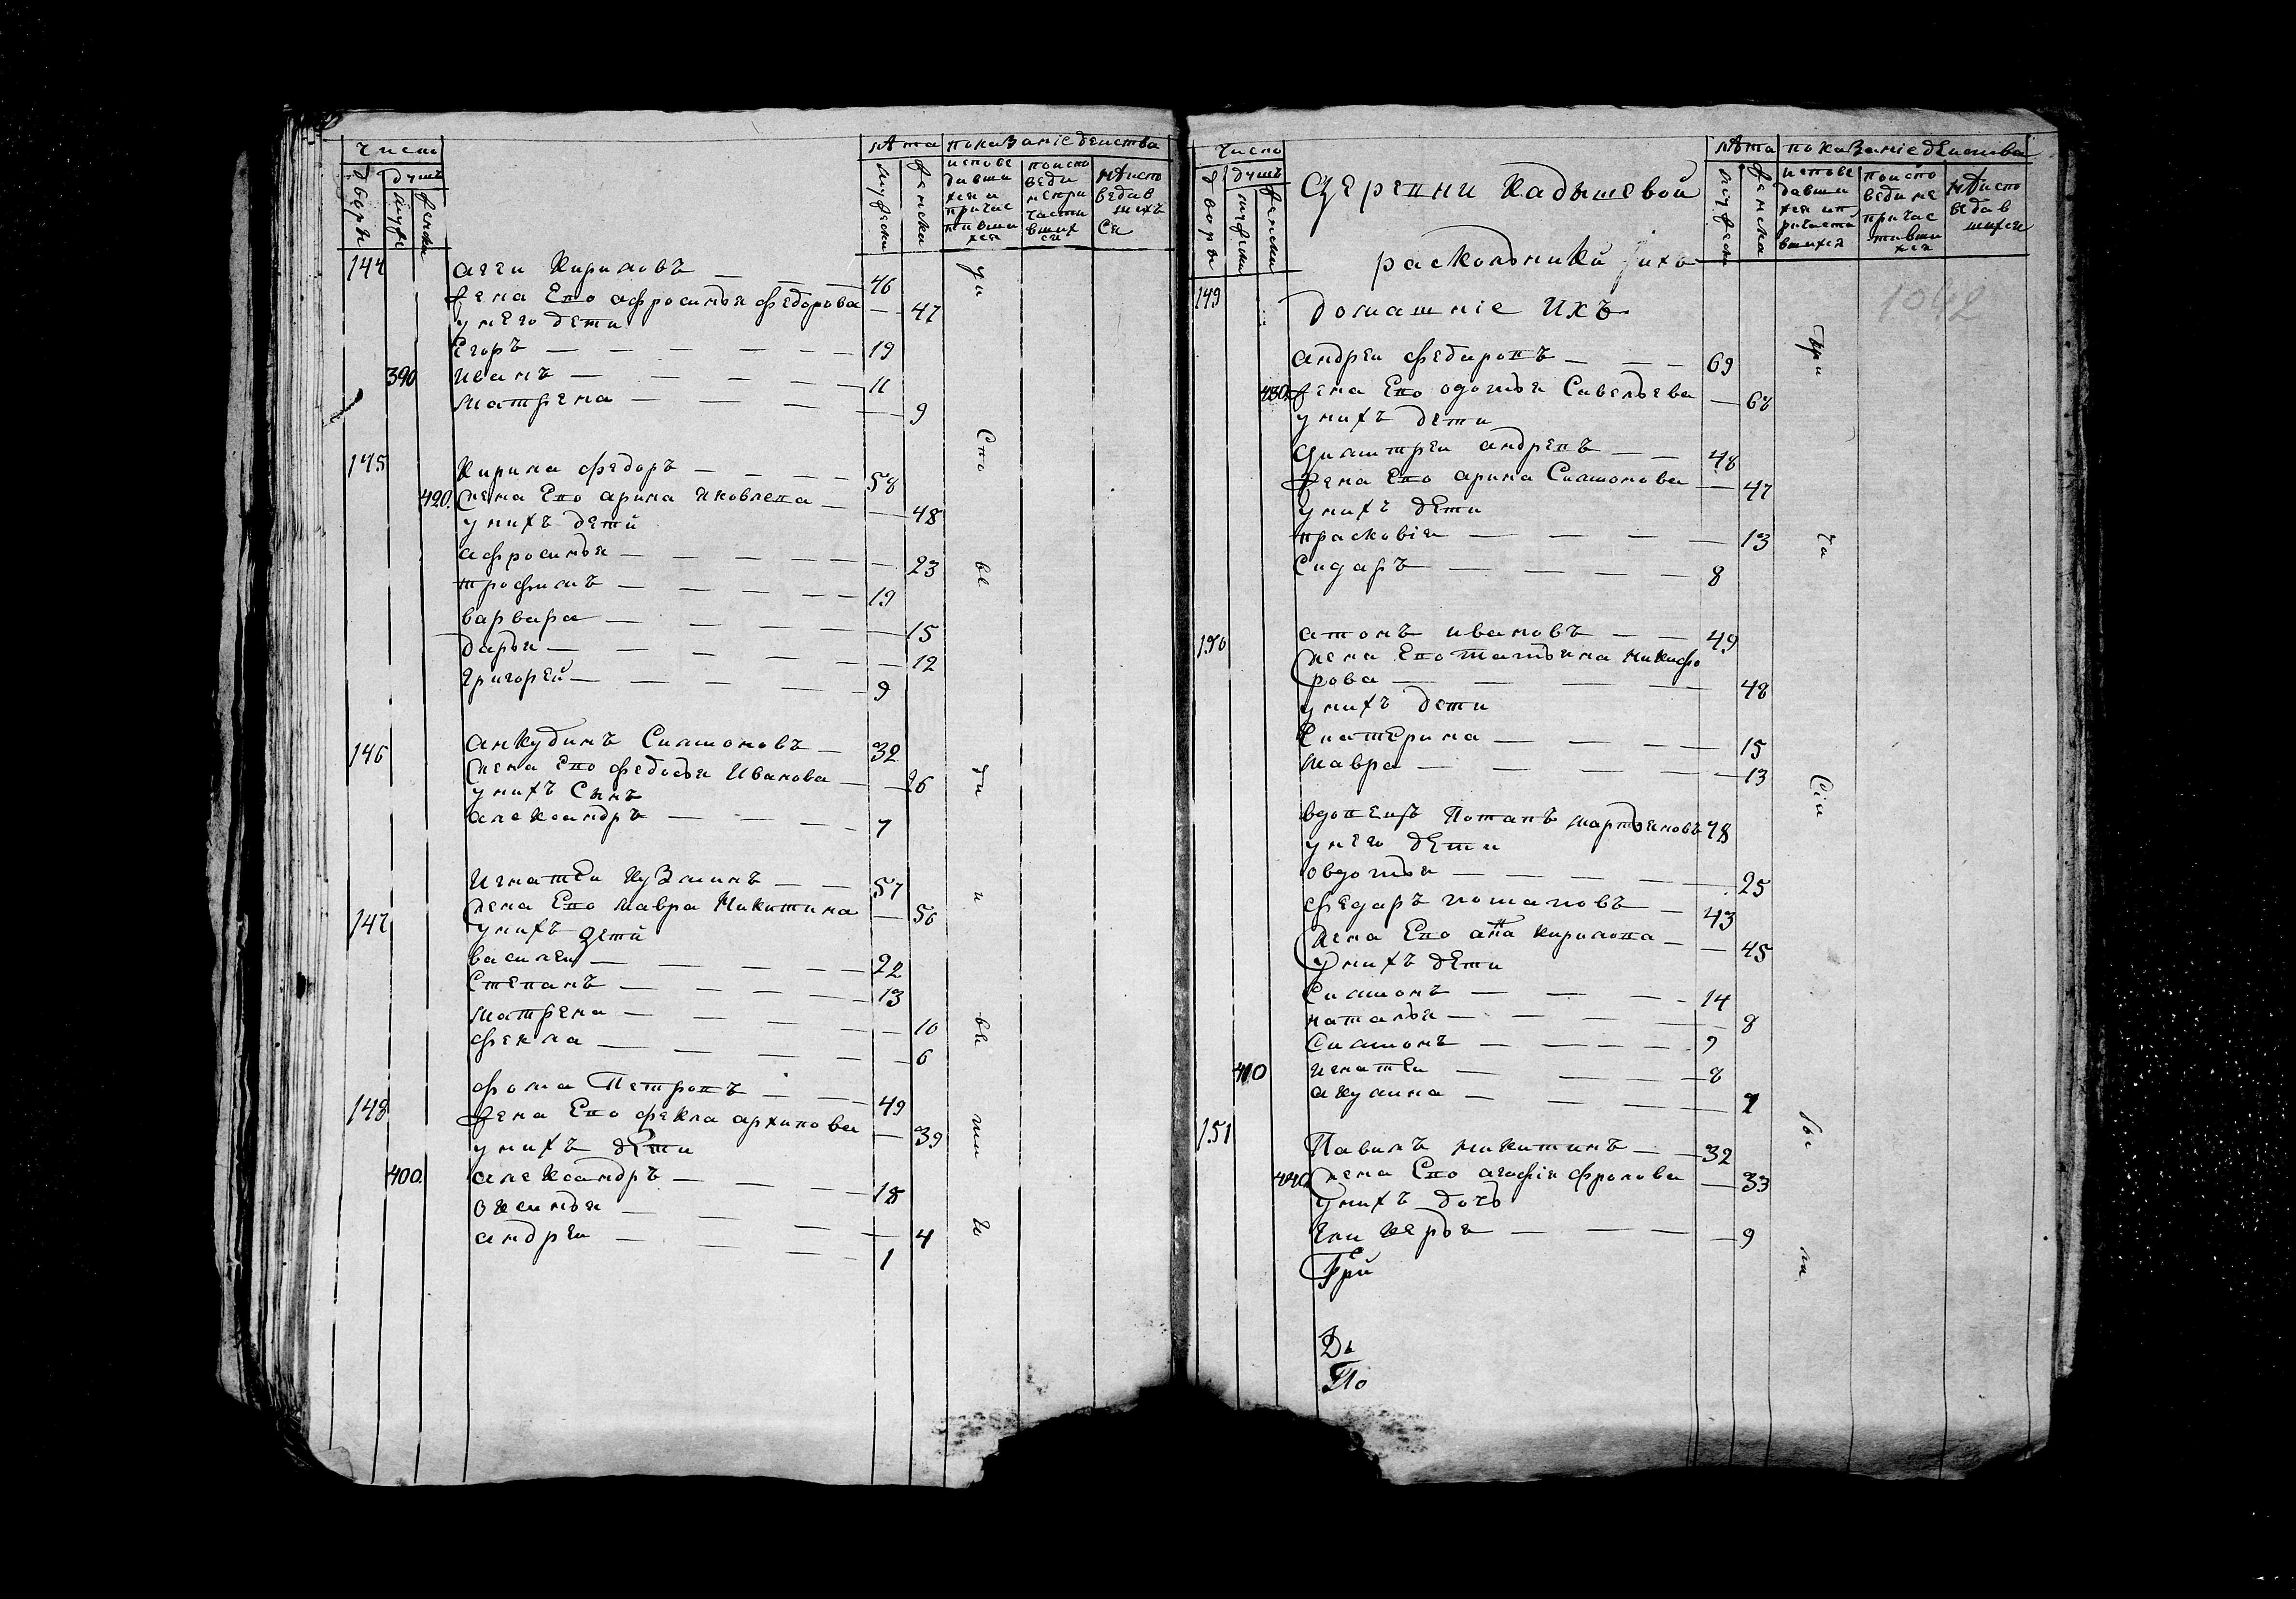 число
лѣта показаніе действа
дворы
душъ
мужес
женски
мужески
женски
испове
давши
хся и
причас
тивши
хся
поиспо
веди
непри
части
вших
ся
неиспо
ведав
шихъ
ся
144 аггеи Кириловъ 46
жена Его афросинья федорова 47
у него дети
Егоръ 19
390 иванъ 11
матрена 9
145 Кирила федоръ 58
420. жена Его арина яковлева 48
у нихъ дети
афросинья 23
трофимъ 19
варвара 15
дарья 12
григорей 9
146 анкудинъ Симоновъ 32
жена Его федосья Иванова 26
у нихъ Сынъ
александръ 7
147 Игнатеи кузминъ 57
жена Его мавра Никитина 50
у нихъ дети
василеи 22
Степанъ 13
матрена 10
фекла 6
148 фома Петровъ 49
жена Его фекла архипова 39
у нихъ дети
400. александръ 18
оксинья 4
андреи 1
число
лѣта показаніе действа
дворы
душъ
мужески
женски
мужески
женска
испове
давши
хся ип
ричаста
вшихся
поиспо
веди не
причас
тивши
хся
неиспо
ведав
шихся
Деревни Кадышевой
раскольники
1042
149 домашніе ихъ
андреи федаровъ 69
430 жена Его одотья Савельева 68
у нихъ дети
Димитреи андревъ 48
жена Его арина Симонова 47
у нихъ дети
прасковія 13
Сидаръ 8
150 атонъ ивановъ 49
жена Его татьяна Никифо
рова 48
у нихъ дети
Екатерина 15
мавра 13
вдовецъ Потапъ мартыновъ 78
у него дети
овдотья 25
федаръ потаповъ 43
жена Его анна кирилова 45
у нихъ дети
Симонъ 14
наталья 8
Симонъ 9
410 игнатеи 8
акулина 7
151 Павилъ никитинъ 32
440 жена Его агафія фролова 33
у нихъ дочь
гликерья 9
Гри
Дь
По